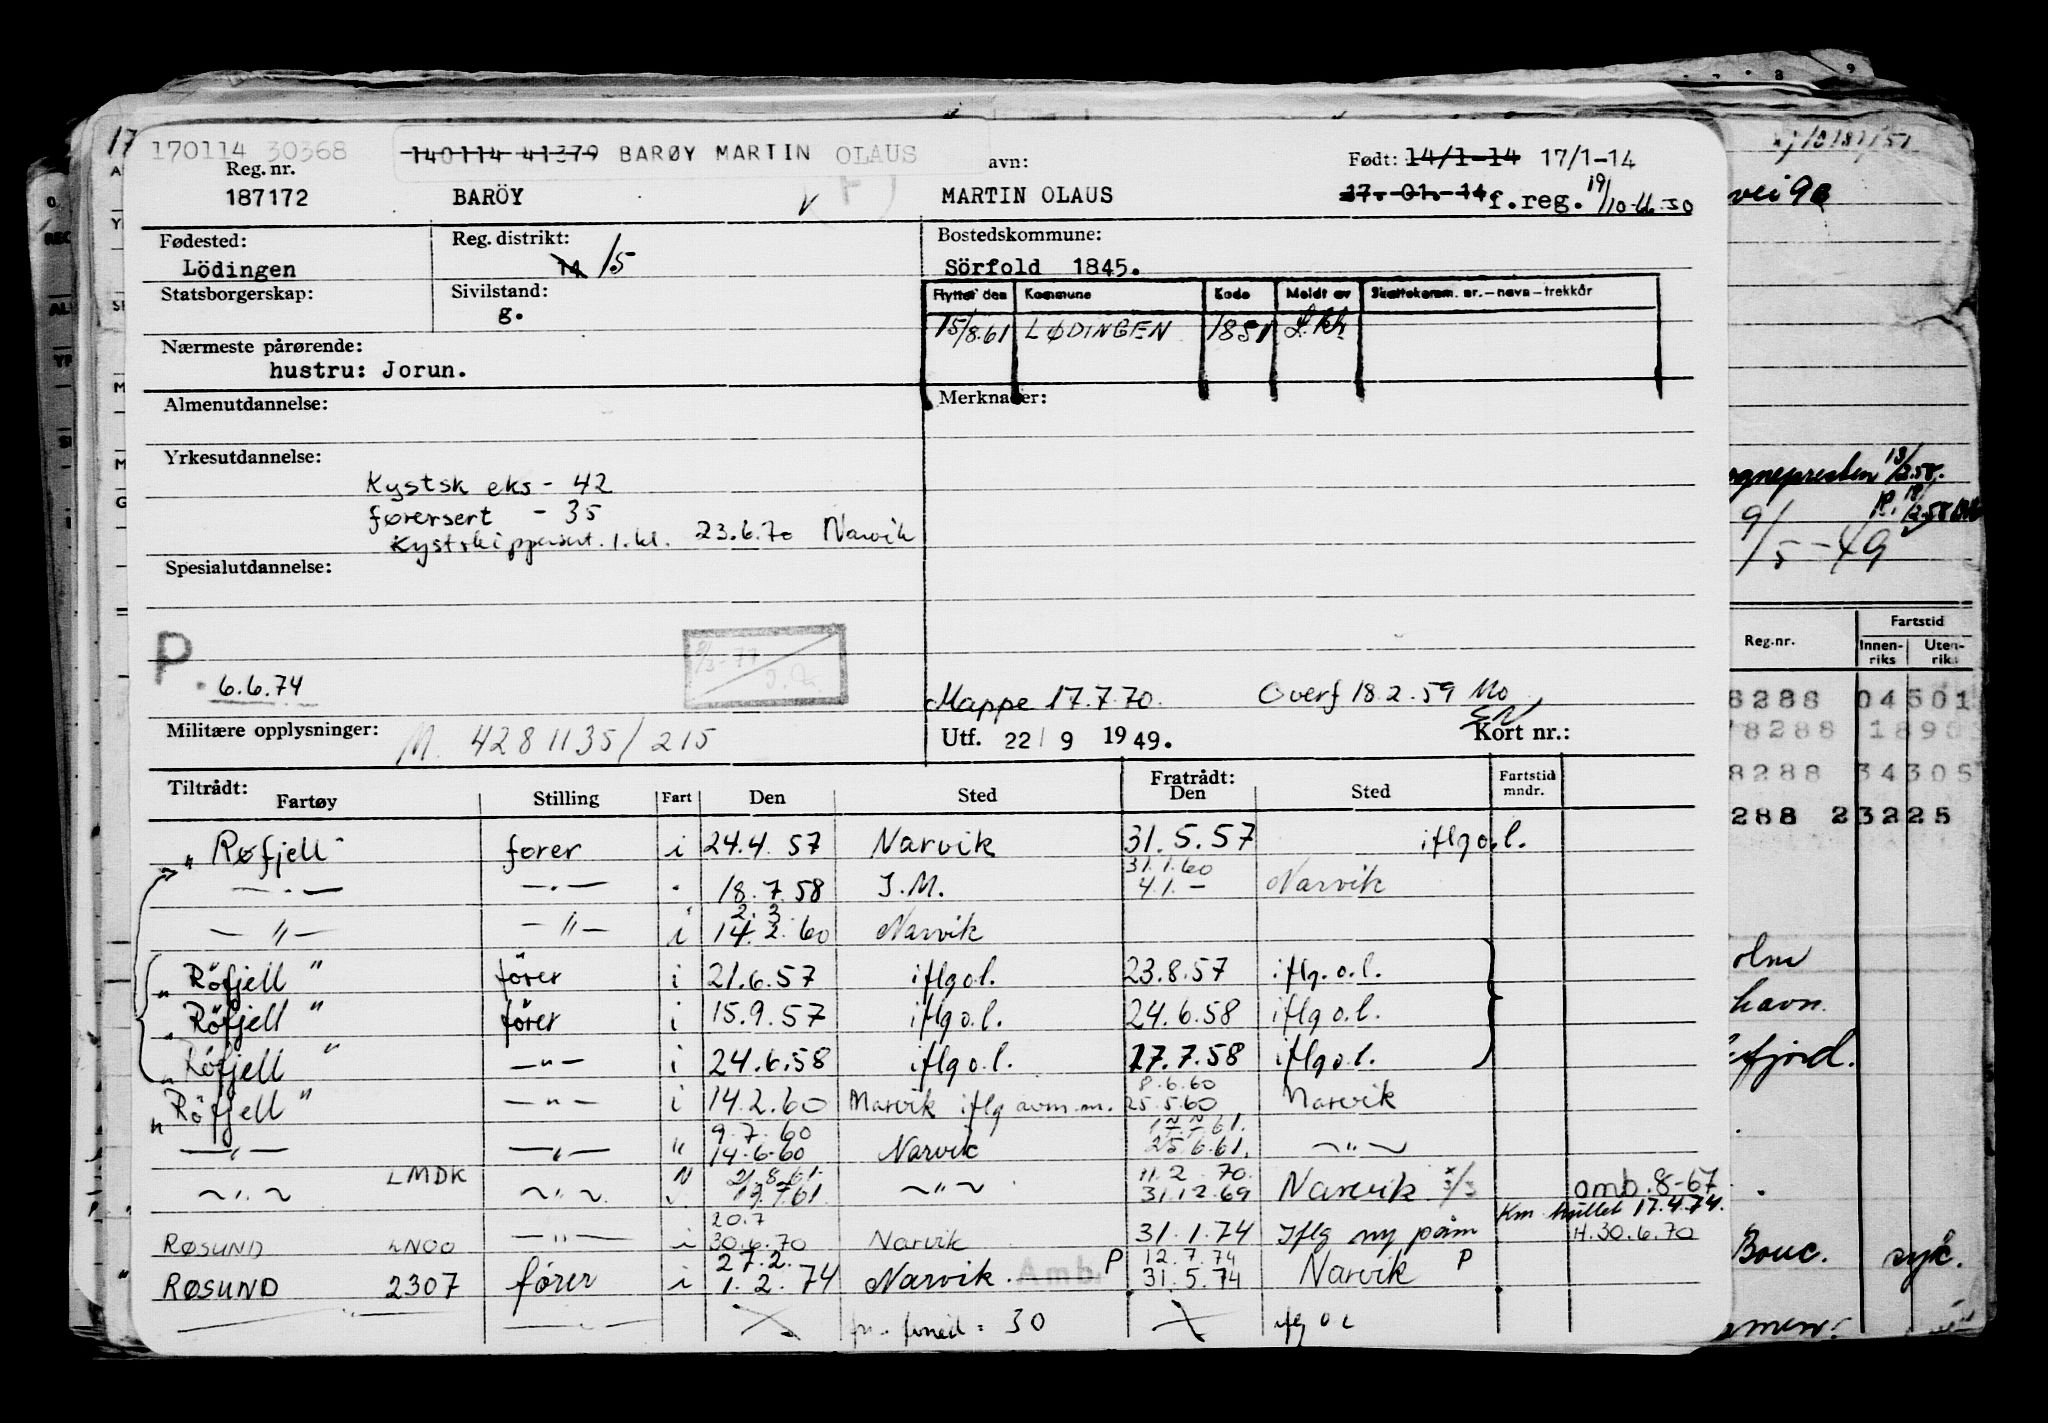 170114 30368 140114 41379 BARØY MARTIN OLAUS avn: Født: 14/1-14 17/1-14
Reg. nr.
187172 BARÖY MARTIN OLAUS 17.-01.-14 f.reg. 19/10-66
Fødested: Reg. distrikt: Bostedskommune:
Lödingen 14 15 Sörfold 1845.
Statsborgerskap: Sivilstand: Flyttet den Kommune Kode Meldt av Skattekomm. nr.-navn-trekkår
g. 15/8.61 LØDINGEN 1851 L.kk.
Nærmeste pårørende:
hustru: Jorun.
Almenutdannelse: Merknader:
Yrkesutdannelse:
Kystsk eks - 42
førersert - 35
Kystskippersert. 1. kl. 23.6.70 Narvik
Spesialutdannelse:
P
6.6.74
Mappe 17.7.70. Overf 18.2.59 Mo
Militære opplysninger: M. 4281135/215 Utf. 22/9 1949. Kort nr.:
Tiltrådt: Fratrådt: Fartstid mndr.
Fartøy Stilling Fart Den Sted Den Sted
" Røfjell " fører i 24.4.57 Narvik 31.5.57 iflg o.l.
31.1.60
—.— —.— . 18.7.58 I.M. 4.1.- Narvik
2.3.
—"— —"— i 14.2.60 Narvik
" Röfjell " förer i 21.6.57 iflg o.l. 23.8.57 iflg. o.l.
" Röfjell " förer i 15.9.57 iflg o.l. 24.6.58 iflg o.l.
" Röfjell " —"— i 24.6.58 iflg o.l. 17.7.58 iflg o.l.
8.6.60
" Röfjell " —"— i 14.2.60 Narvik iflg avm.m. 25.5.60 Narvik
9.7.60
—"— —"— " 14.6.60 Narvik 25.6.61. —"—
21.8.61. 11.2.70.
—"— LMDK —"— 19.7.61 —"— 31.12.69 Narvik amb. 8-67
20.7 17.4.74.
RØSUND LNOO —"— i 30.6.70 Narvik 31.1.74 Iflg ny påm H.30.6.70
27.2. 12.7.74
RØSUND 2307 fører i 1.2.74 Narvik. Amb. P 31.5.74 Narvik P
= 30 iflg o l
17
vei 9
ognepresten 13/2.58.
9/5 - 49
Reg.nr. Fartstid
Innenriks Utenriks
8288 04501
78288 1890
8288 34305
288 23225
olm
havn.
fjord.
Bouc. syk.